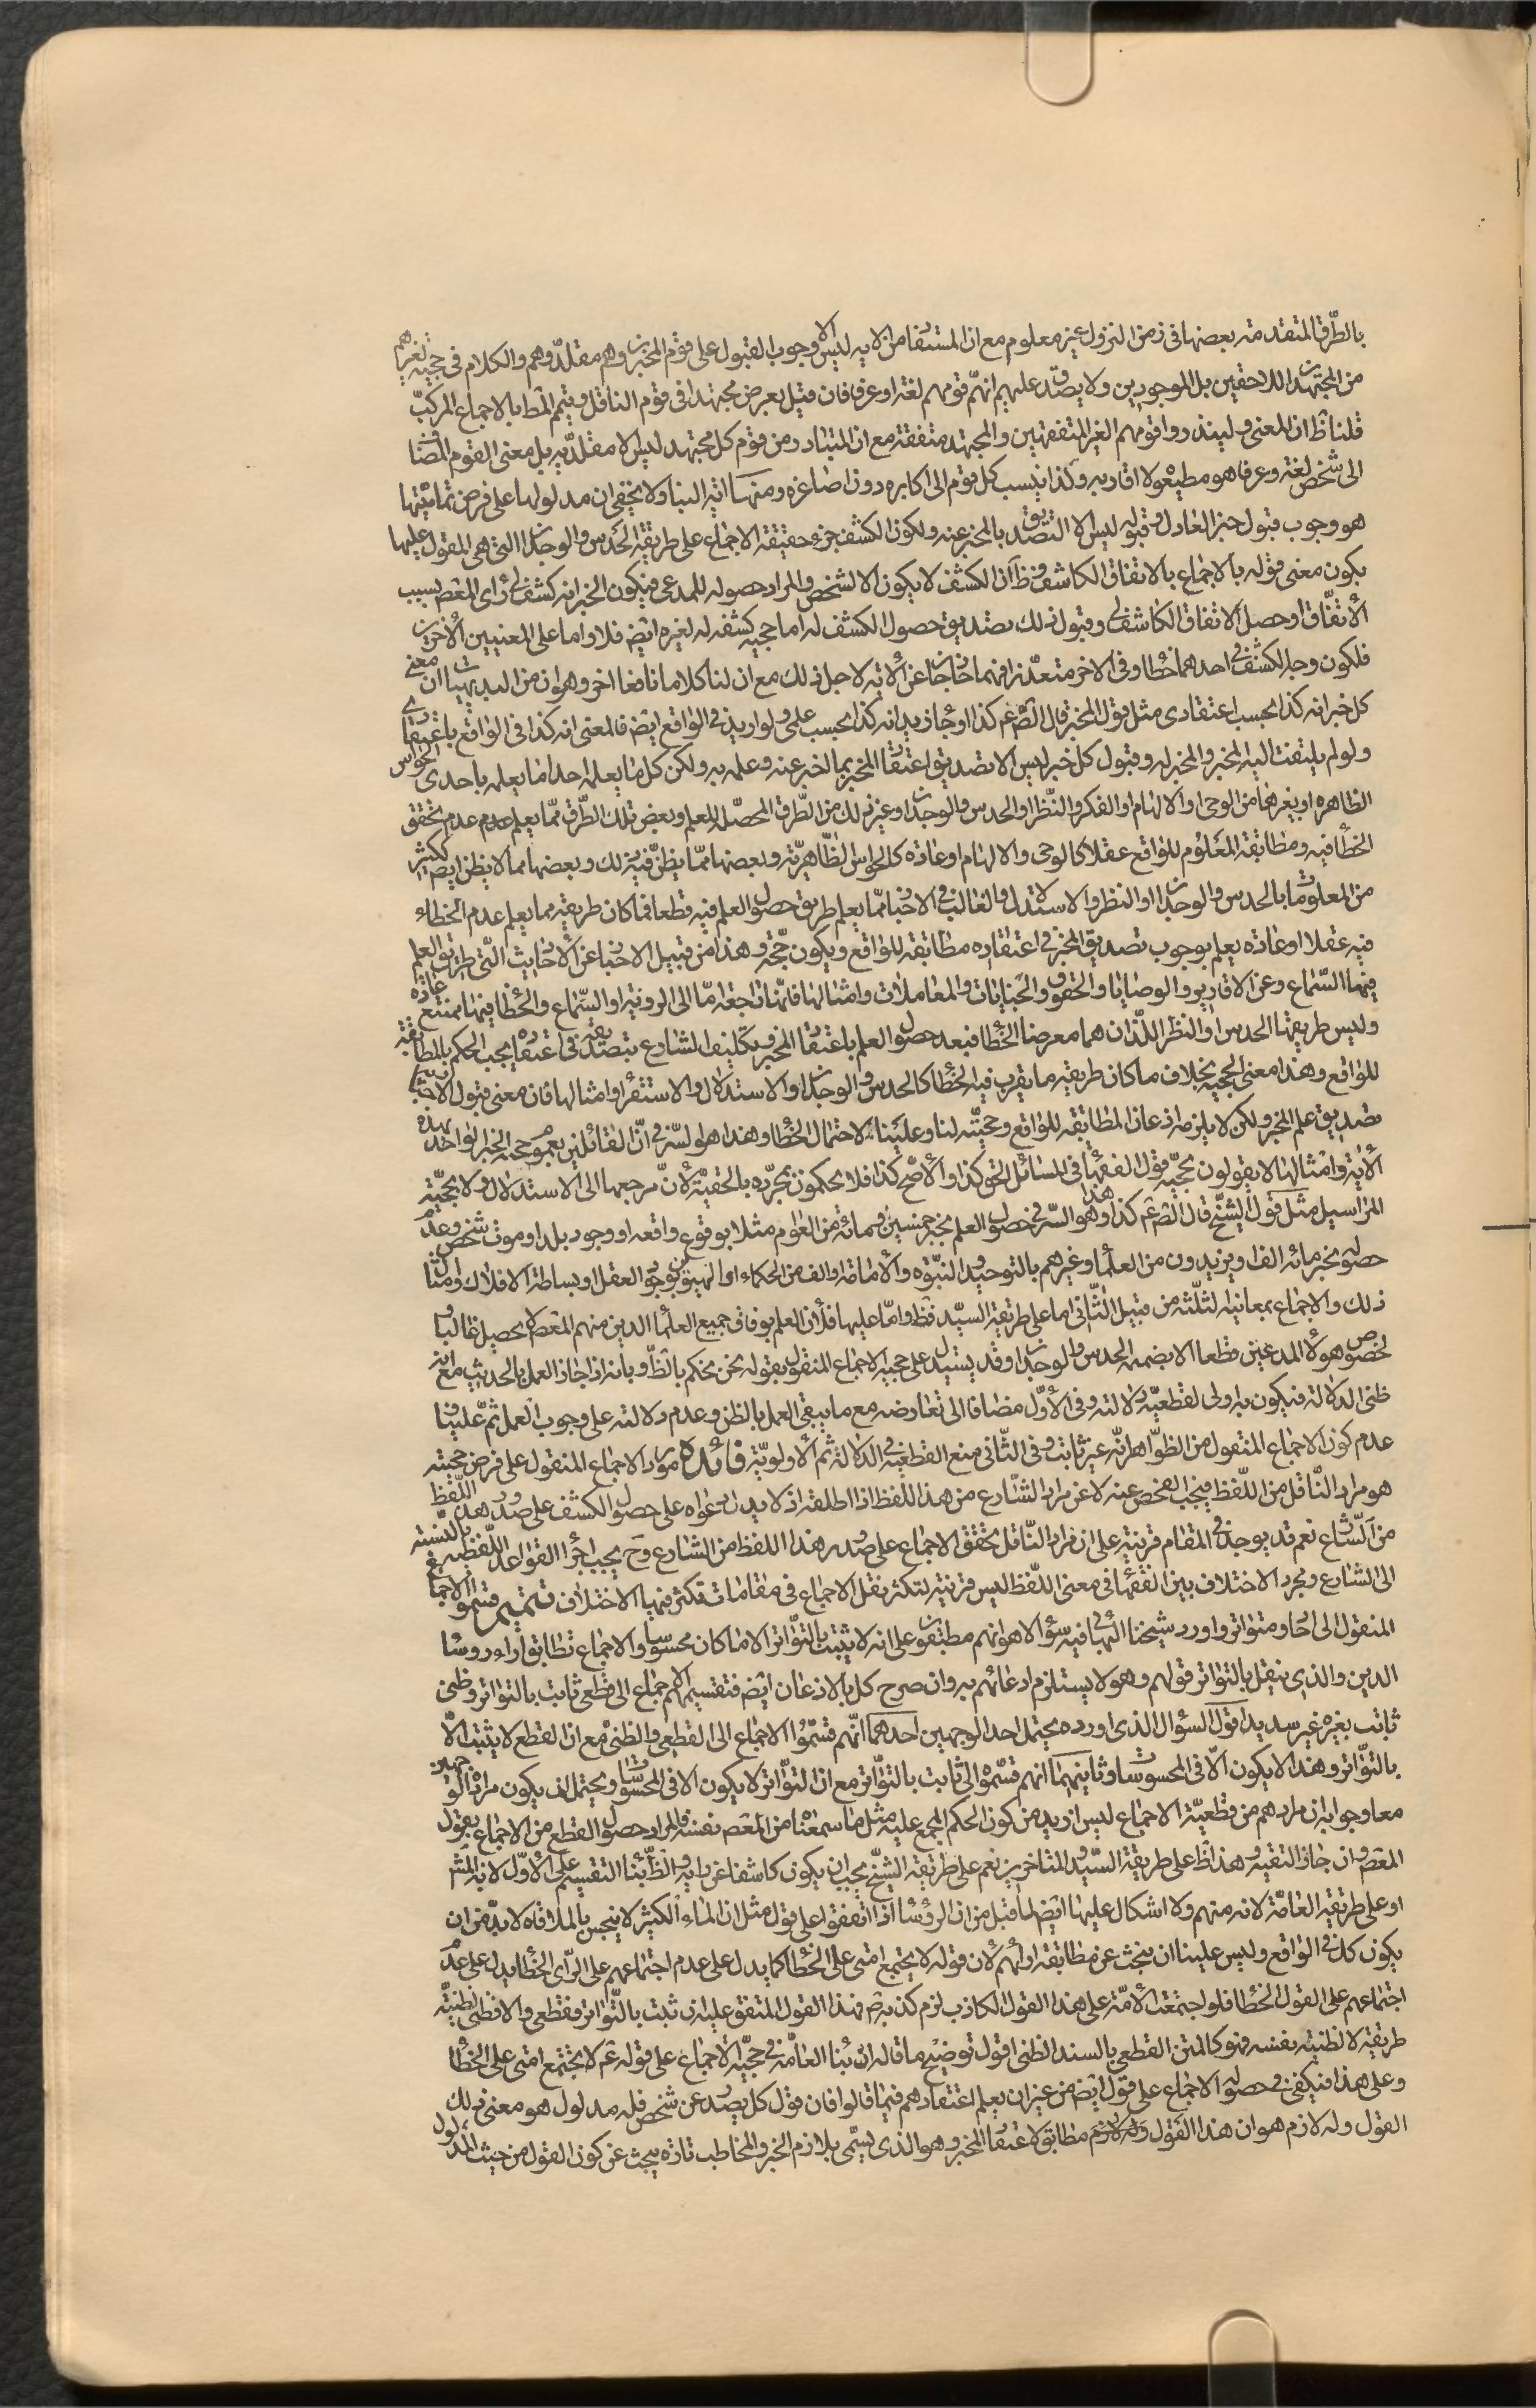 بالطرق المتقدمة بعضها فى زمن النزول غير معلوم مع ان المستفاد من الآية ليس الا وجوب القبول على قوم المخبرين وهم مقلدوهم والكلام فى حجيته لغيرهم
من المجتهدين اللاحقين بل الموجودين ولا يصدق عليهم انهم قومهم لغة او عرفا فان قيل يعرض مجتهدا فى قوم الناقل ويتم المط بالاجماع المركب
قلنا ظ ان المعنى ولينذروا قومهم الغير المتفقهين والمجتهد متفقه مع ان المتبادر من قوم كل مجتهد ليس الا مقلديه بل معنى القوم المضاف
الى شخص لغة وعرفا هو مطيعوه لا اقاربه وكذا ينسب كل قوم الى اكابره دون اصاغره ومنها آية النبا ولا يخفى ان مدلولها على فرض تماميتها
هو وجوب قبول خبر العادل وقبوله ليس الا التصديق بالمخبر عنه ولكون الكشف جزء حقيقة الاجماع على طريقة الحدس والوجدان التى هى المقول عليها
يكون معنى قوله بالاجماع بالاتفاق الكاشف وظ ان الكشف لا يكون الا لشخص والمراد حصوله للمدعى فيكون الخبر انه كشف لى راى المعصم بسبب
الاتفاق او حصل الاتفاق الكاشف لى وقبول ذلك تصديق حصول الكشف له اما حجية كشفه له لغيره ايضا فلا واما على المعنيين الاخرين
فلكون وجه الكشف فى احدهما خطا وفى الاخر متعذرا فهما خارجان عن الآية لاجل ذلك مع ان لنا كلاما نافعا اخر وهو ان من البديهيات ان معنى
كل خبر انه كذا بحسب اعتقادى مثل قول المخبر قال الص ع كذا او جاء زيد انه كذا بحسب علمى ولو اريد فى الواقع ايضا فالمعنى انه كذا فى الواقع باعتقادى
ولو لم يلتفت اليه المخبر والمخبر له وقبول كل خبر ليس الا تصديق اعتقاد المخبر بما اخبر عنه وعلمه به ولكن كل ما يعلمه احد اما يعلمه باحدى الحواس
الظاهره او بغيرها من الوحى او الالهام او الفكر والنظر او الحدس والوجدان او غير ذلك من الطرق المحصلة للعلم وبعض تلك الطرق مما يعلم عدم تحقق
الخطأ فيه ومطابقة المعلوم للواقع عقلا كالوحى والالهام او عادة كالحواس الظاهرية وبعضها مما يظن فيه ذلك وبعضها مما لا يظن ايضا ككثير
من المعلومات بالحدس والوجدان او النظر والاستدلال والغالب فى الاخبار مما يعلم طريق حصول العلم فيه قطعا فما كان طريقه مما يعلم عدم الخطاء
فيه عقلا او عادة يعلم بوجوب تصديق المخبر فى اعتقاده مطابقته للواقع ويكون حجة وهذا من قبيل الاخبار عن الاحاديث التى طريق العلم
فيها السماع وعن الاقارير والوصايا والحقوق والجنايات والمعاملات وامثالها فانها راجعة اما الى الرؤية او السماع والخطا فيها ممتنع عادة
وليس طريقها الحدس او النظر اللذان هما معرضا الخطا فبعد حصول العلم باعتقاد المخبر وتكليف الشارع بتصديقه فى اعتقاده يجب الحكم بالمطابقة
للواقع وهذا معنى الحجية بخلاف ما كان طريقه ما يقرب فيه الخطا كالحدس والوجدان او الاستدلال والاستقراء وامثالها فان معنى قبول الاخبار فيها
تصديق علم المخبر ولكن لا يلزمه اذعان المطابقة للواقع وحجيته لنا وعلينا لاحتمال الخطا وهذا هو السر فى ان القائلين بعموم حجية الخبر الواحد بهذه
الآية وامثالها لا يقولون بحجية قول الفقهاء فى المسائل الحق كذا والاصح كذا فلا يحكمون بمجرده بالحقية لان مرجعها الى الاستدلال ولا بحجية
المراسيل مثل قول الشيخ قال الص ع كذا وهذا هو السر فى حصول العلم بخبر خمسين ومائة من العوام مثلا بوقوع واقعة او وجود بلد او موت شخص وعدم
حصوله بخبر مائة الف او يزيدون من العلماء وغيرهم بالتوحيد والنبوة والامامة او الف من الحكماء الالهيين بوجود العقل او بساطة الافلاك وامثال
ذلك والاجماع بمعانيه الثلثة من قبيل الثانى اما على طريقة السيد فظ واما عليها فلان العلم بوفاق جميع العلماء الذين منهم المعصم لا يحصل غالبا
لخصوص هولاء المدعين قطعا الا بضميمة الحدس والوجدان وقد يستدل على حجية الاجماع المنقول بقوله نحن نحكم بالظ وبانه اذا جاز العمل بالحديث مع انه
ظنى الدلالة فيكون به اولى لقطعية دلالته وفى الاول مضافا الى تعارضه مع ما ينفى العمل بالظن وعدم دلالته على وجوب العمل ثم علينا
عدم كون الاجماع المنقول من الظواهر انه غير ثابت وفى الثانى منع القطعية فى الدلالة ثم الاولوية فائدة مورد الاجماع المنقول على فرض حجيته
هو مراد الناقل من اللفظ فيجب الفحص عنه لا عن مراد الشارع من هذا اللفظ اذا اطلقه اذ لا يدل دعواه على حصول الكشف على صدور هذا اللفظ
من الشارع نعم قد يوجد فى المقام قرينة على ان مراد الناقل تحقق الاجماع على صدور هذا اللفظ من الشارع وح يجب اجراء القواعد اللفظية بالنسبة
الى الشارع ومجرد الاختلاف بين الفقهاء فى معنى اللفظ ليس قرينة لتكثر نقل الاجماع فى مقامات تكثر فيها الاختلاف تتميم قسموا الاجماع
المنقول الى احاد ومتواتر واورد شيخنا البهائى فيه سؤالا هو انهم مطبقون على انه لا يثبت بالتواتر الا ما كان محسوسا والاجماع تطابق اراء رؤساء
الدين والذى ينقل بالتواتر قولهم وهو لا يستلزم ادعائهم به وان صرح كل بالاذعان ايضا فتقسيمهم الاجماع الى قطعى ثابت بالتواتر وظنى
ثابت بغيره غير سديد اقول السؤال الذى اورده يحتمل احد الوجهين احدهما انهم قسموا الاجماع الى القطعى والظنى مع ان القطع لا يثبت الا
بالتواتر وهذا لا يكون الا فى المحسوسات وثانيهما انهم قسموه الى ثابت بالتواتر مع ان التواتر لا يكون الا فى المحسوسات ويحتمل ان يكون مراده الوجهين
معا وجوابه ان مرادهم من قطعية الاجماع ليس ازيد من كون الحكم المجمع عليه مثل ما سمعناه من المعصم نفسه فالمراد حصول القطع من الاجماع بقول
المعصم وان جاز التقية وهذا ظ على طريقة السيد والمتاخرين نعم على طريقة الشيخ يجب ان يكون كاشفا عن رايه والظ بناء التقسيم على الاول لانه المشر
او على طريقة العامة لانه منهم ولا اشكال عليها ايضا لما قيل من ان الرؤساء اذا اتفقوا على قول مثل ان الماء الكثير لا ينجس بالملاقاه لا بد من ان
يكون كل فى الواقع وليس علينا ان نبحث عن مطابقة ارائهم لان قوله لا يجتمع امتى على الخطا كما يدل على عدم اجتماعهم على الراى الخطا يدل على عدم
اجتماعهم على القول الخطا فلو اجتمعت الامة على هذا القول الكاذب لزم كذبه ص فهذا القول المتفق عليه ان ثبت بالتواتر فقطعى والا فظنى لظنية
طريقه لا لظنيته بنفسه فهو كالمتن القطعى بالسند الظنى اقول توضيح ما قاله ان بناء العامة فى حجية الاجماع على قوله ع لا يجتمع امتى على الخطا
وعلى هذا فيكفى فى حصوله الاجماع على قول ايضا من غير ان يعلم اعتقادهم فيما قالوا فان قول كل يصدر عن شخص فله مدلول هو معنى ذلك
القول وله لازم هو ان هذا القول مطابق لاعتقاد المخبر وهو الذى يسمى بلازم الخبر والمخاطب تارة يبحث عن كون القول من حيث المدلول